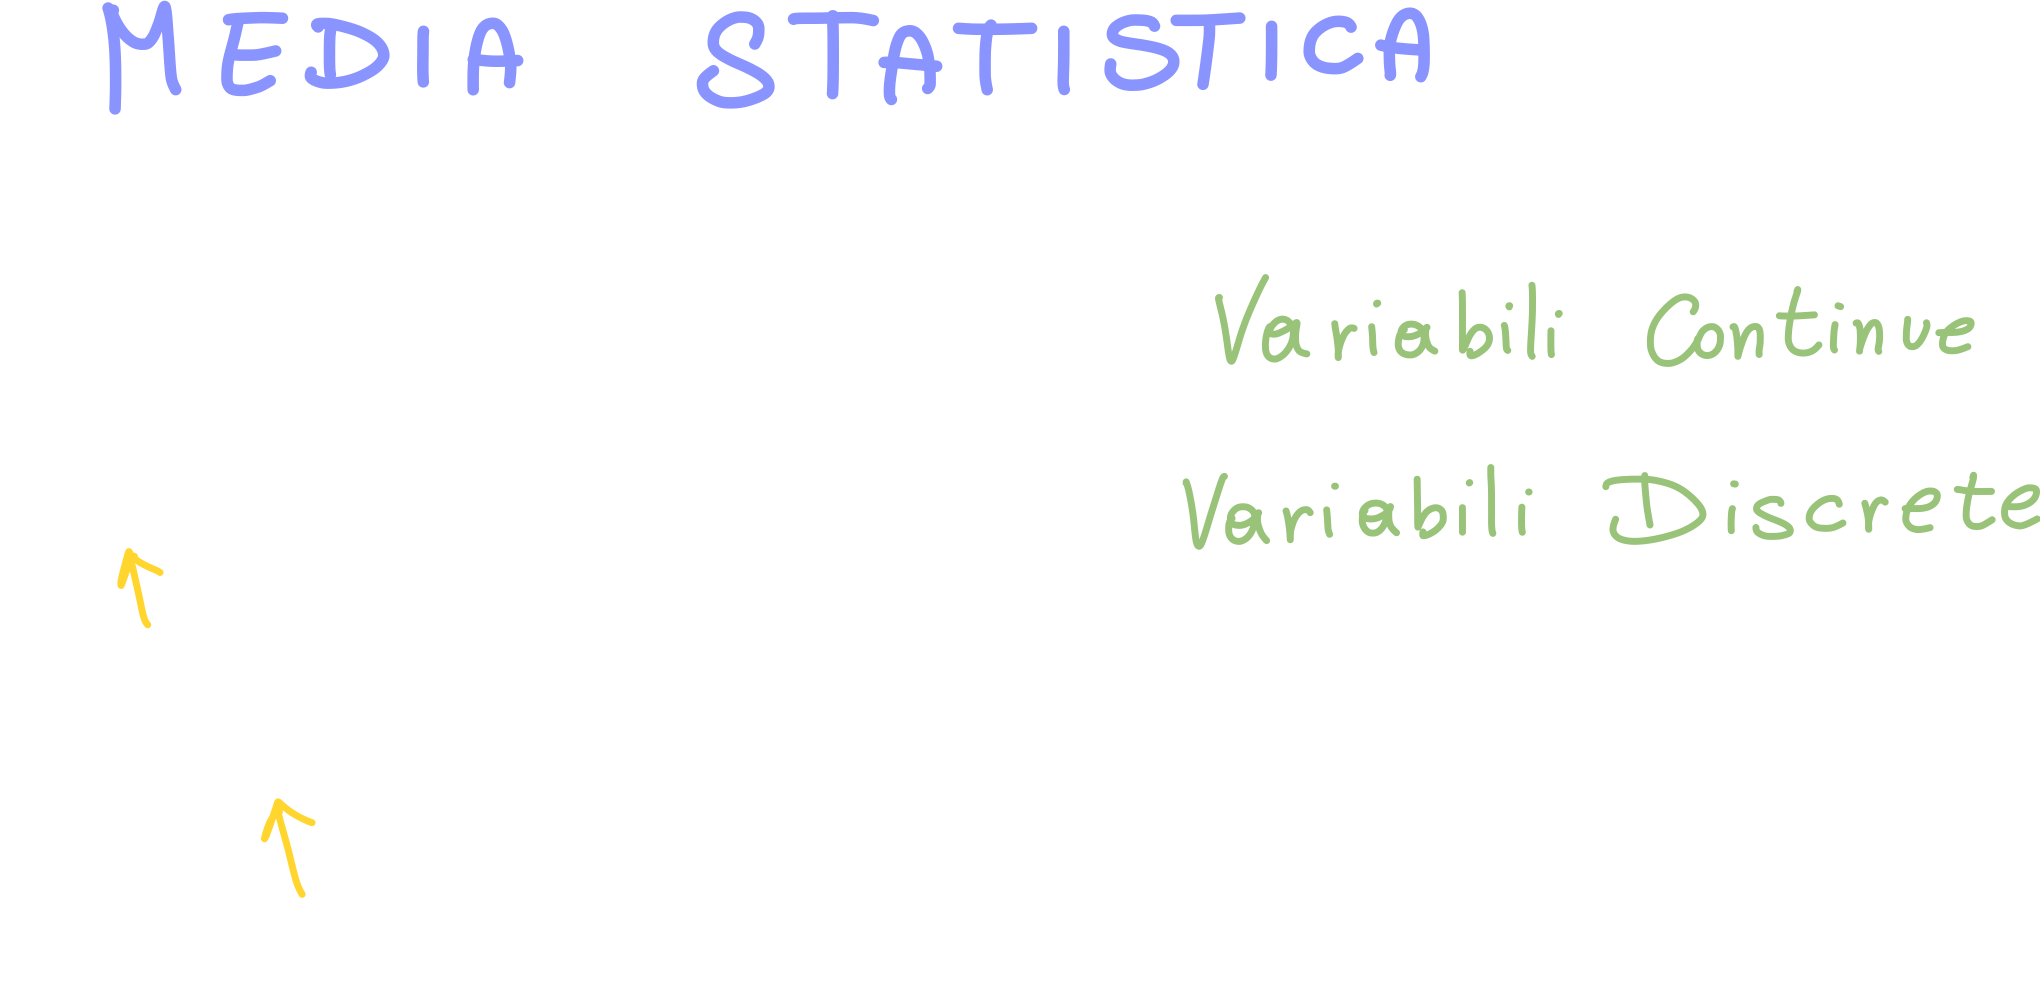 MEDIA STATISTICA
Variabili Continue
Variabili Discrete